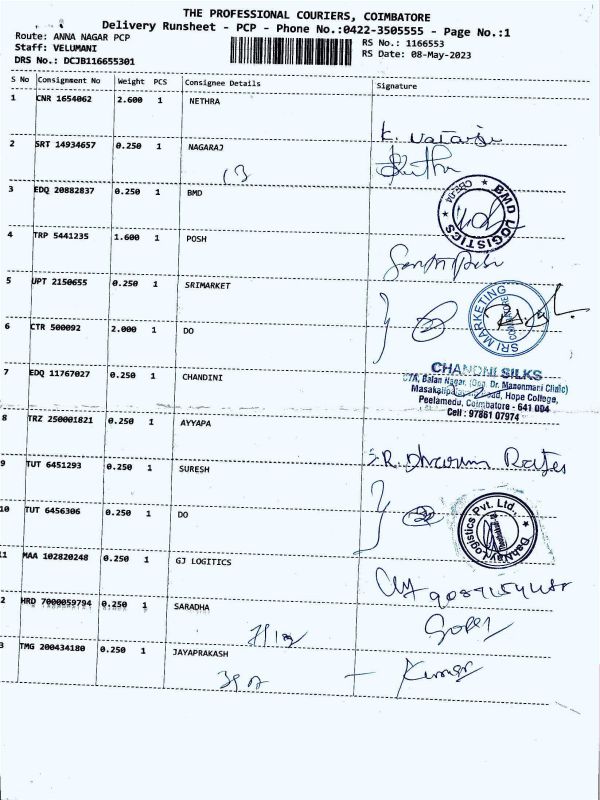 THE PROFESSIONAL COURIERS, COIMBATORE
Delivery Runsheet - PCP - Phone No.:0422-3505555 - Page No.:1
Route: ANNA NAGAR PCP
RS No.: 1166553
Staff: VELUMANI
RS Date: 08-May-2023
DRS No.: DCJB116655301
S No Consignment No Weight PCS Consignee Details Signature
1 CNR 1654062 2.600 1 NETHRA
2 SRT 14934657 0.250 1 NAGARAJ
13
3 EDQ 20882837 0.250 1 BMD
BMD LOGISTICS ★ CBE-04 ★
4 TRP 5441235 1.600 1 POSH
5 UPT 2150655 0.250 1 SRIMARKET
SRI MARKETING
6 CTR 500092 2.000 1 DO
7 EDQ 11767027 0.250 1 CHANDINI
CHANDNI SILKS
57A, Balan Nagar, (Opp. Dr. Manonmani Clinic)
Masakalipalayam Road, Hope College,
Peelamedu, Coimbatore - 641 004
Cell : 97861 07974
8 TRZ 250001821 0.250 1 AYYAPA
S.R. Dharum
9 TUT 6451293 0.250 1 SURESH
10 TUT 6456306 0.250 1 DO
Logistics Pvt. Ltd.,
11 MAA 102820248 0.250 1 GJ LOGITICS
2 HRD 7000059794 0.250 1 SARADHA
3 TMG 200434180 0.250 1 JAYAPRAKASH
Kumar